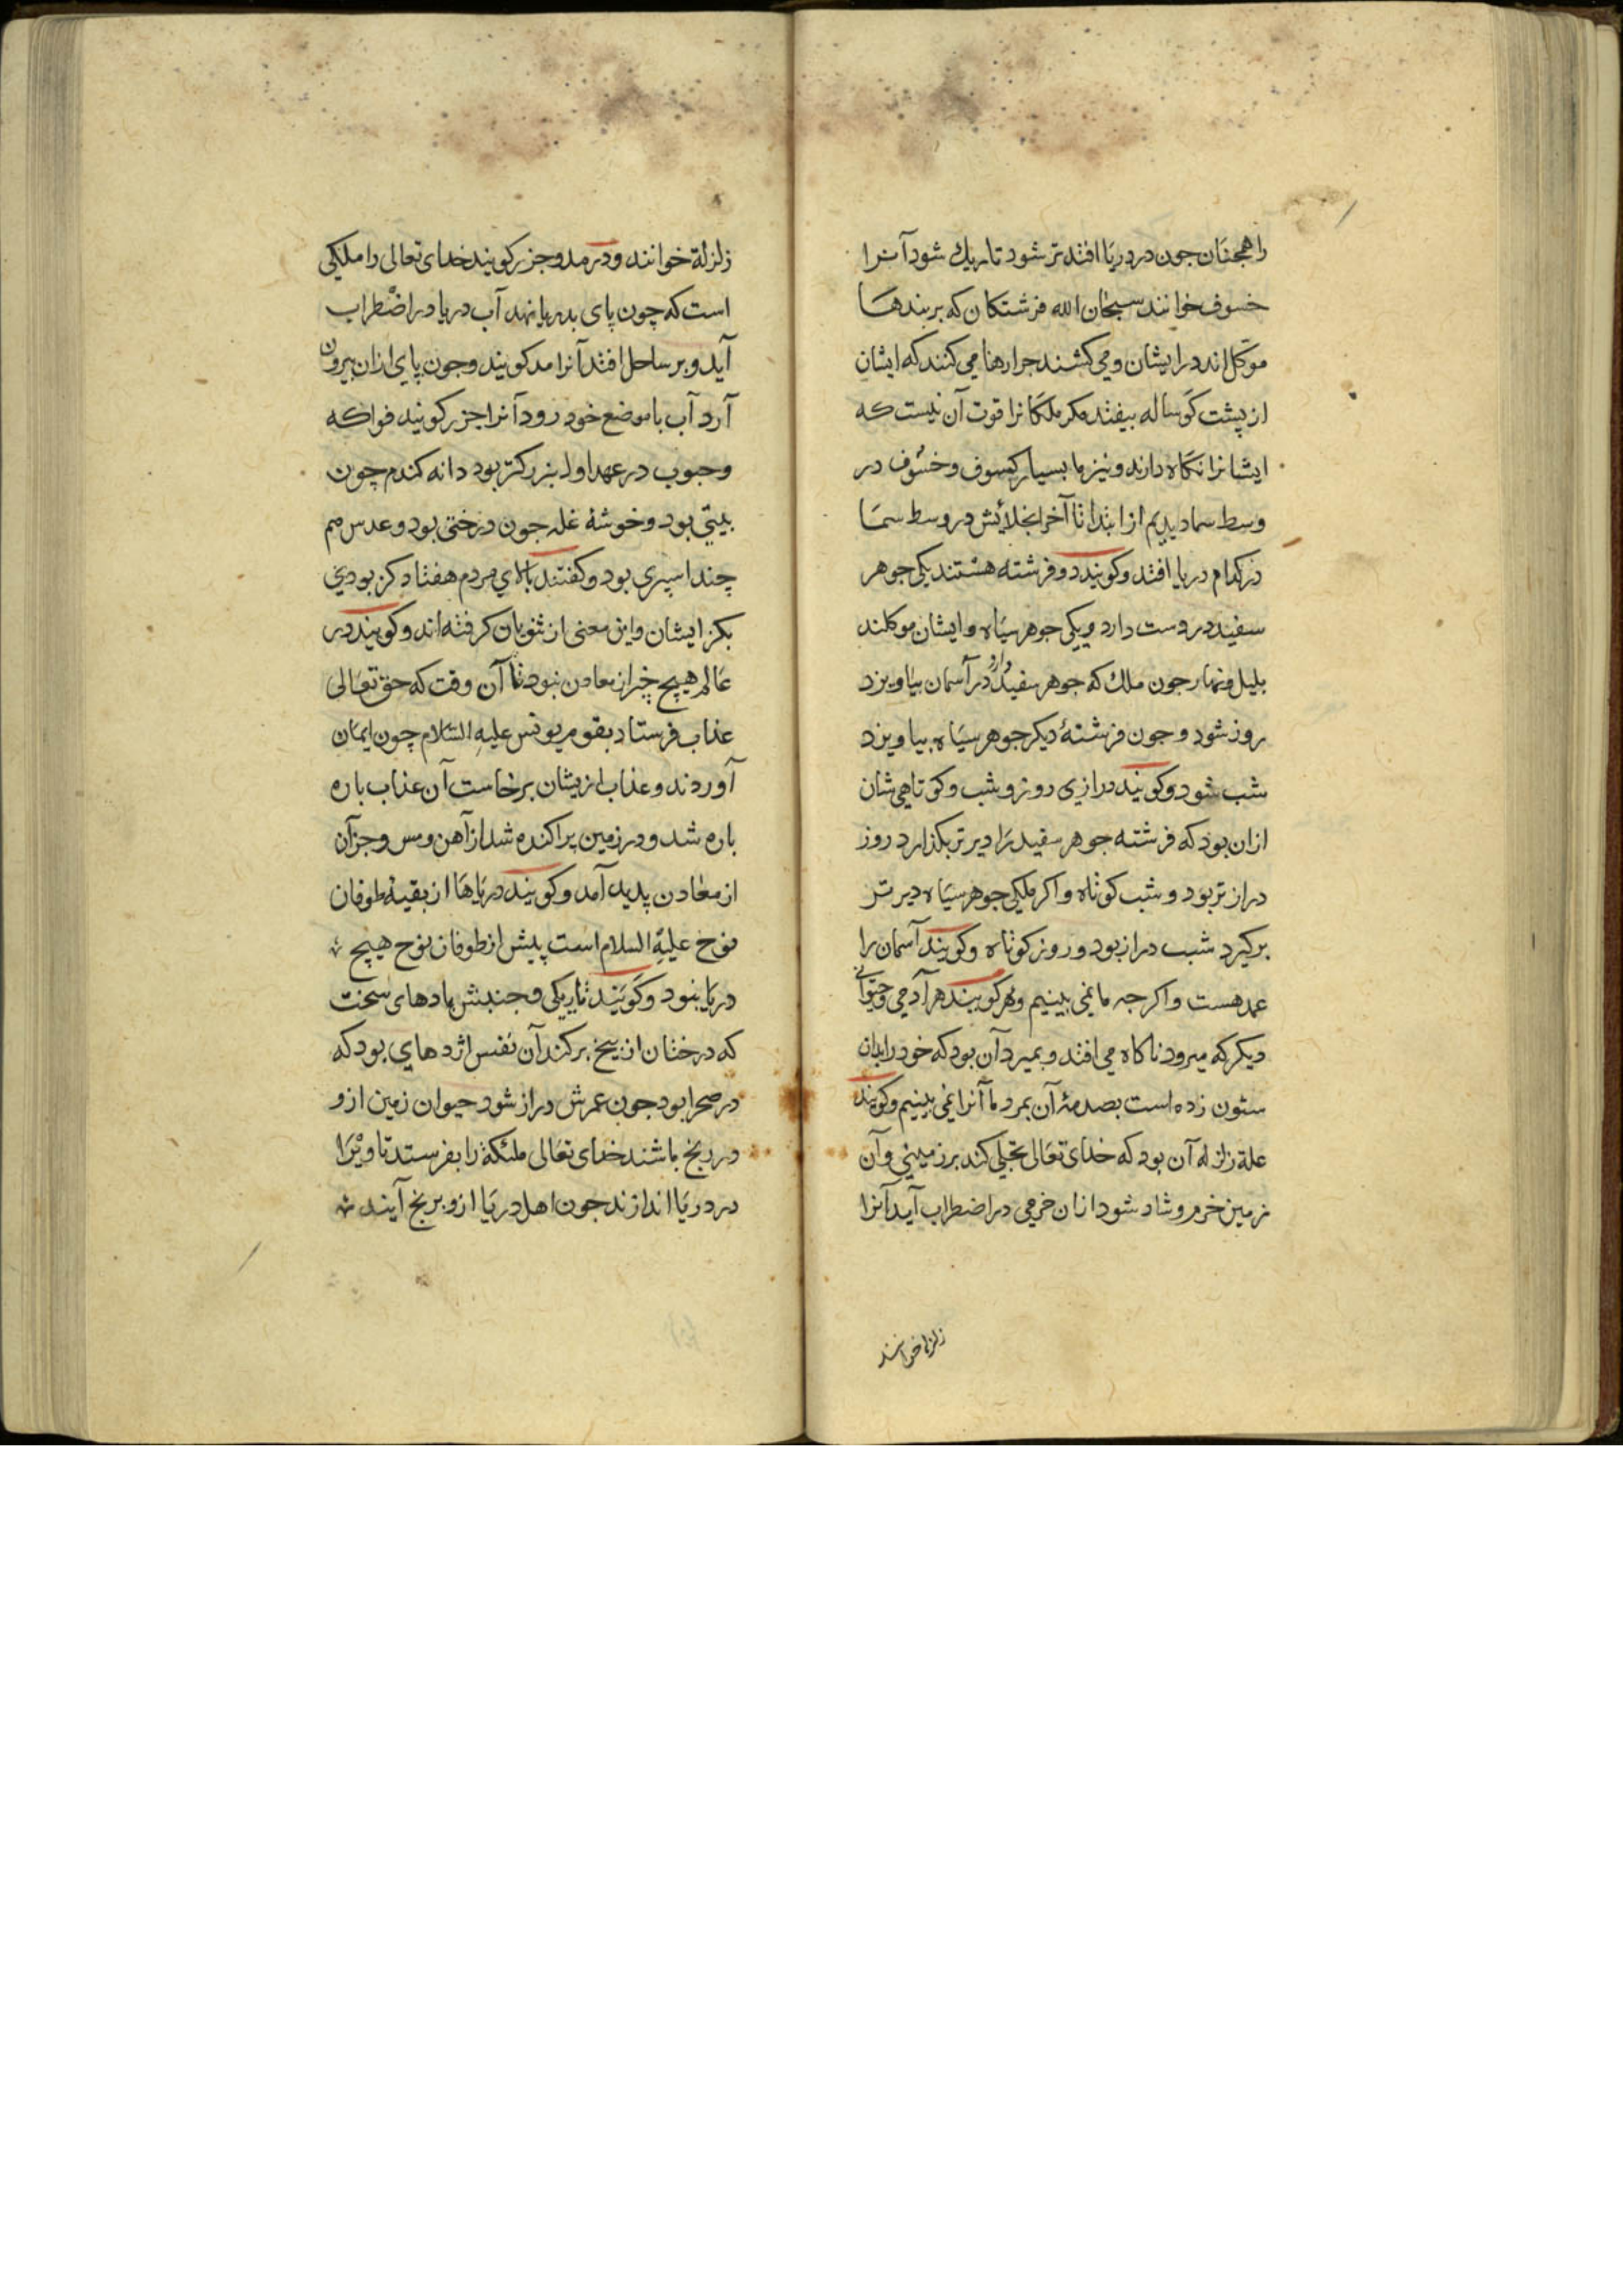 را همجنان جون در دریا افتد تر شود تا ریك شود آنرا
خسوف خوانند سبحان الله فرشتكان كه بر بندها
موكل اند در ایشان و می كشند جرا رها می كنند كه ایشان
از پشت كوساله بیفتد مكر ملكانرا قوت آن نیست كه
ایشانرا نكاه دارند و نیز ما بسیار كسوف و خسوف در
وسط سما دیدیم از ابتدا تا آخر انجلائش در وسط سما
در كدام دریا افتد و كویند دو فرشته هستند یكی جوهر
سفید در دست دارد و یكی جوهر سیاه و ایشان موكلند
بلیل و نهار جون ملك كه جوهر سفید دارد در آسمان بیاویزد
روز شود و جون فرشتهٔ دیكر جوهر سیاه بیاویزد
شب شود و كویند درازی روز و شب و كوتاهی شان
ازان بود كه فرشته جوهر سفید را دیر تر بكذارد روز
دراز تر بود و شب كوتاه و اكر ملكی جوهر سیاه دیر تر
بركیرد شب دراز بود و روز كوتاه و كویند آسمان را
عمد هست و اكر جه ما نمی بینیم و هم كویند هر آدمی و حیوانی
دیكر كه میرود ناكاه می افتد و بمیرد آن بود كه خود را بدان
ستون زده است بصدمهٔ آن بمرد ما آنرا نمی بینیم و كویند
علة زلزله آن بود كه خدای تعالی تجلی كند بر زمینی و آن
زمین خرم و شاد شود ازان خرمی در اضطراب آید آنرا
زلزله خوانند
زلزلة خوانند و در مد و جزر كویند خدای تعالی را ملكی
است كه چون پای بدریا نهد آب دریا در اضطراب
آید و بر ساحل افتد آنرا مد كویند و جون پای ازان بیرون
آرد آب با موضع خود رود آنرا جزر كویند فواكه
و حبوب در عهد اول بزركتر بود دانه كندم چون
بیتی بود و خوشهٔ غله جون درختی بود و عدس هم
چند اسپری بود و كفتند بالای مردم هفتاد كز بودی
بكز ایشان و این معنی از ثنویان كرفته اند و كویند در
عالم هیچ چیز از معادن نبود تا آن وقت كه حق تعالی
عذاب فرستاد بقوم یونس علیه السلام چون ایمان
آوردند و عذاب ازیشان برخاست آن عذاب باره
باره شد و در زمین پراكنده شد از آهن و مس و جز آن
از معادن پدید آمد و كویند دریاها از بقیهٔ طوفان
نوح علیه السلام است پیش از طوفان نوح هیچ
دریا نبود و كویند تاریكی و جنبش بادهای سخت
كه درختان از بیخ بركند آن نفس اژدهای بود كه
در صحرا بود جون عمرش دراز شود حیوان زمین ازو
در رنج باشند خدای تعالی ملئكة را بفرستد تا ویرا
در دریا اندازند جون اهل دریا ازو برنج آیند